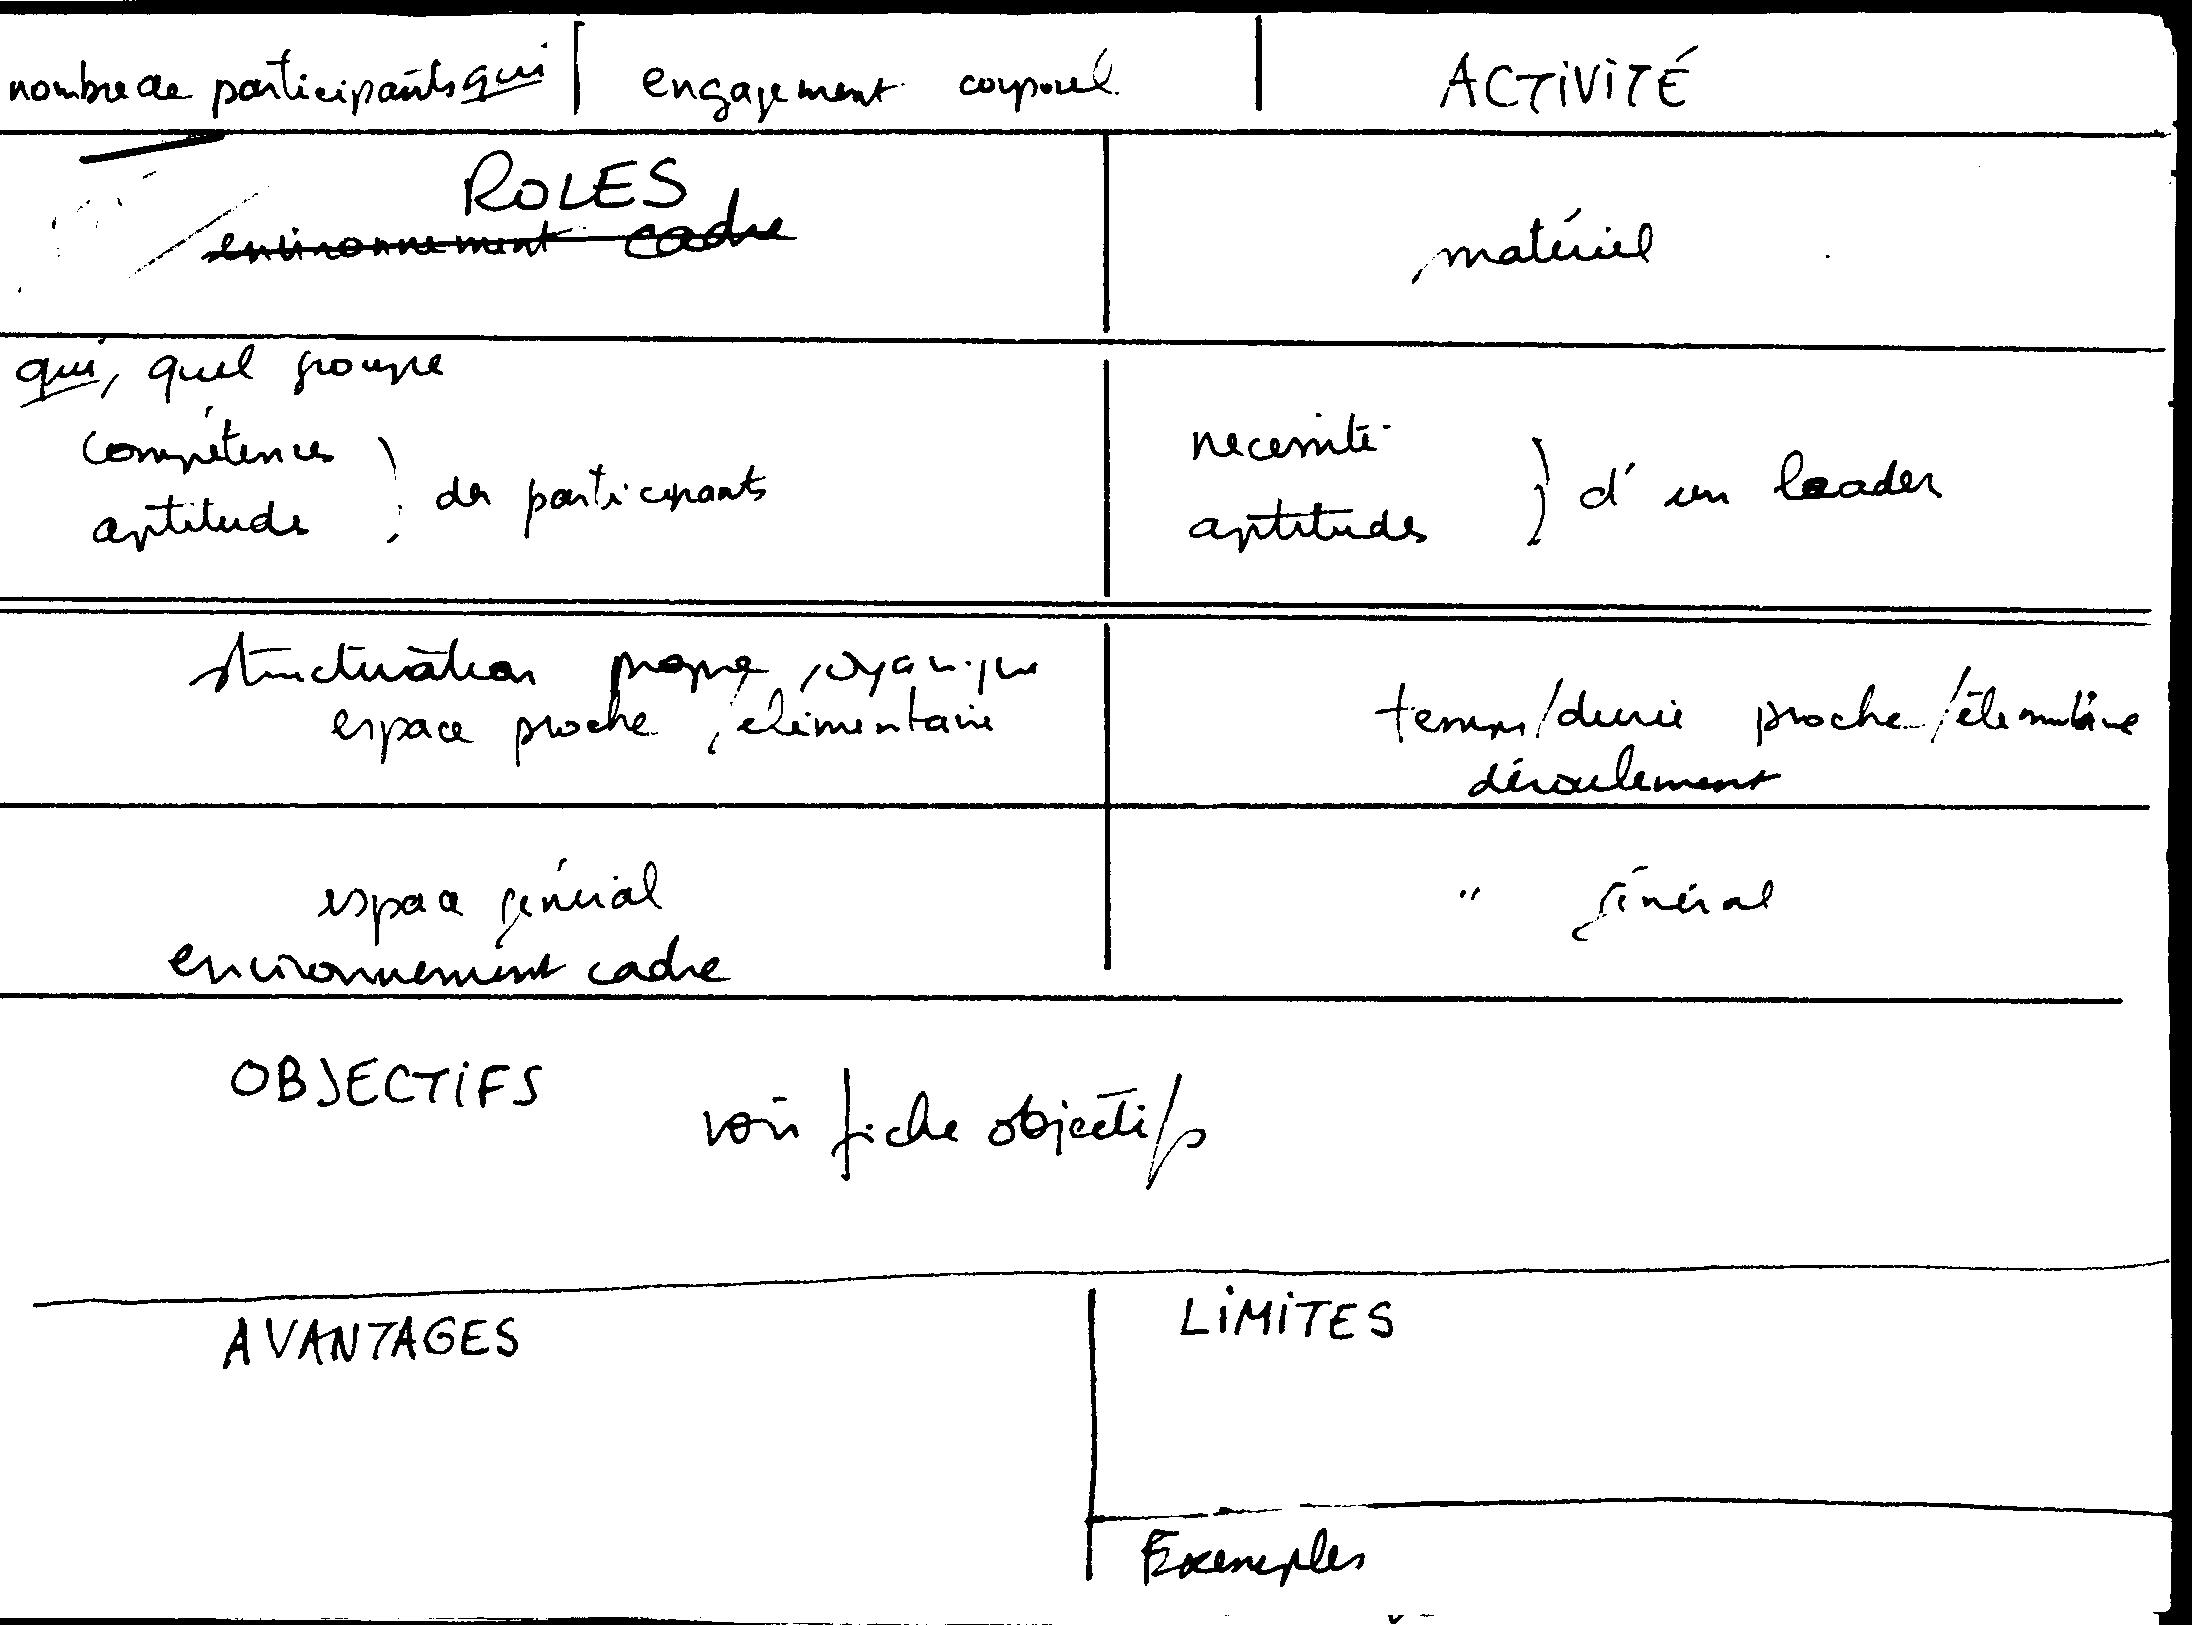 nombre de participants qui engagement corporel ACTIVITÉ
ROLES
environnement cadre
matériel
qui, quel groupe
compétences
aptitude
des participants
necessité
aptitudes
d'un leader
structuration propre
espace proche / élémentaire
temps/durée proche/élémentaire
déroulement
espace général
environnement cadre
" général
OBJECTIFS
voir fiche objectifs
AVANTAGES
LIMITES
Exemples